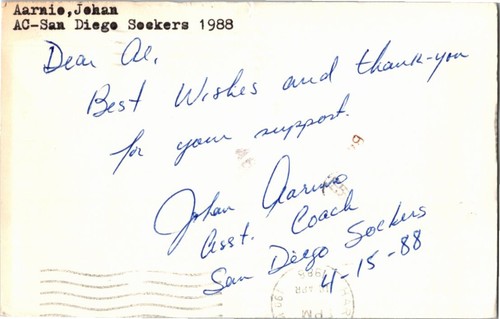 Aarnio,Johan
AC-San Diego Sockers 1988
Dear Al,
Best Wishes and thank-you
for your support.
Johan Aarnio
Asst. Coach
San Diego Sockers
4-15-88